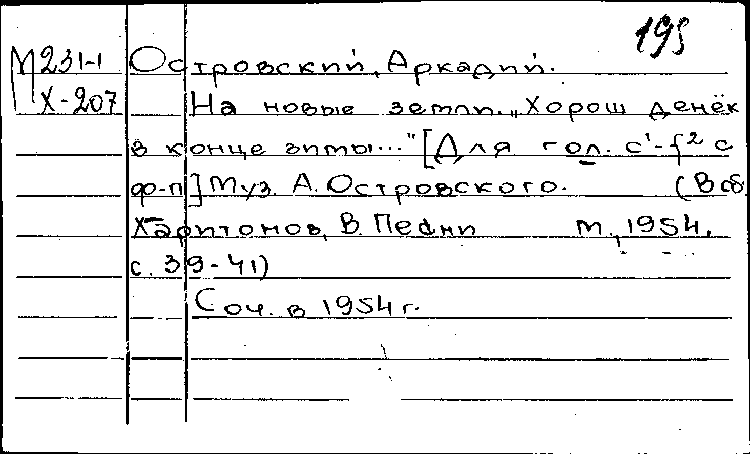 195
М 231-1 Островский, Аркадий.
Х-207 На новые земли. „Хорош денёк
в конце зимы..." [Для гол. c¹-f² с
ф-п] Муз. А. Островского. (В сб.
Харитонов, В. Песни М., 1954.
с. 39-41)
Соч. в 1954 г.